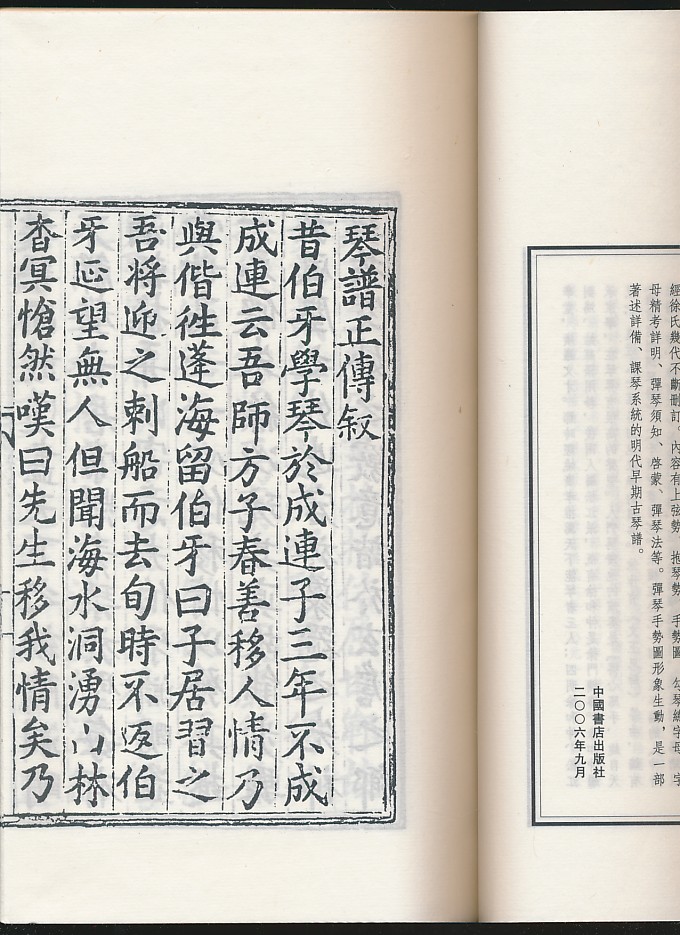 經徐氏幾代不斷刪訂。內容有上弦勢、抱琴勢、手勢圖、勾琴總字母、字
母精考詳明、彈琴須知、啓蒙、彈琴法等。彈琴手勢圖形象生動，是一部
著述詳備、課琴系統的明代早期古琴譜。
中國書店出版社
二〇〇六年九月
琴譜正傳叙
昔伯牙學琴於成連子三年不成
成連云吾師方子春善移人情乃
與偕徃蓬海留伯牙曰子居習之
吾將迎之刺船而去旬時不返伯
牙延望無人但聞海水洞湧山林
杳冥愴然嘆曰先生移我情矣乃